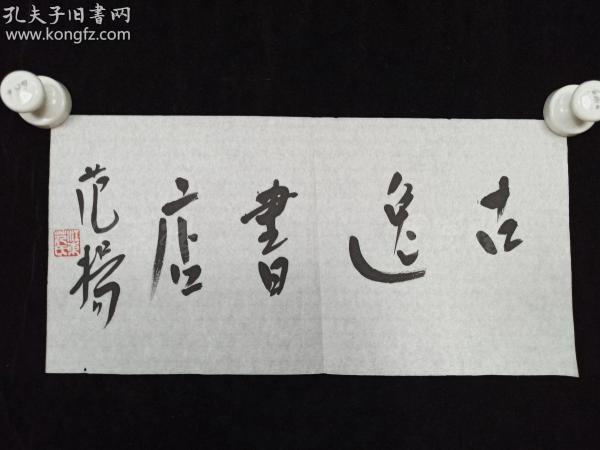 孔夫子旧书网
www.kongfz.com
古逸書店
范揚